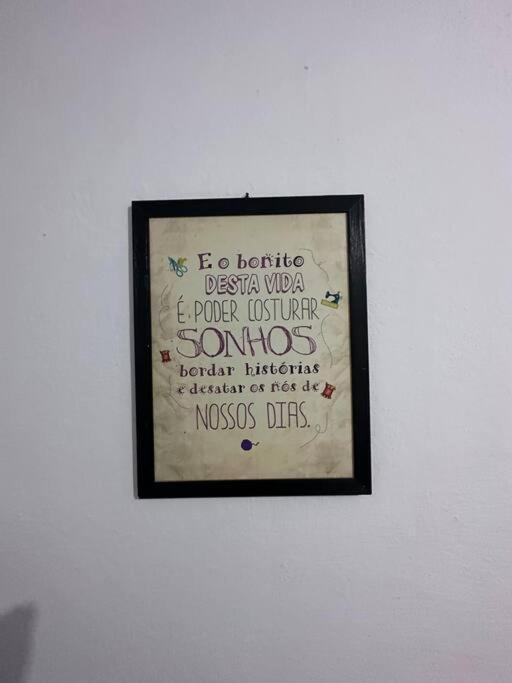 E o bonito
DESTA VIDA
É PODER COSTURAR
SONHOS
bordar histórias
e desatar os nós de
NOSSOS DIAS.